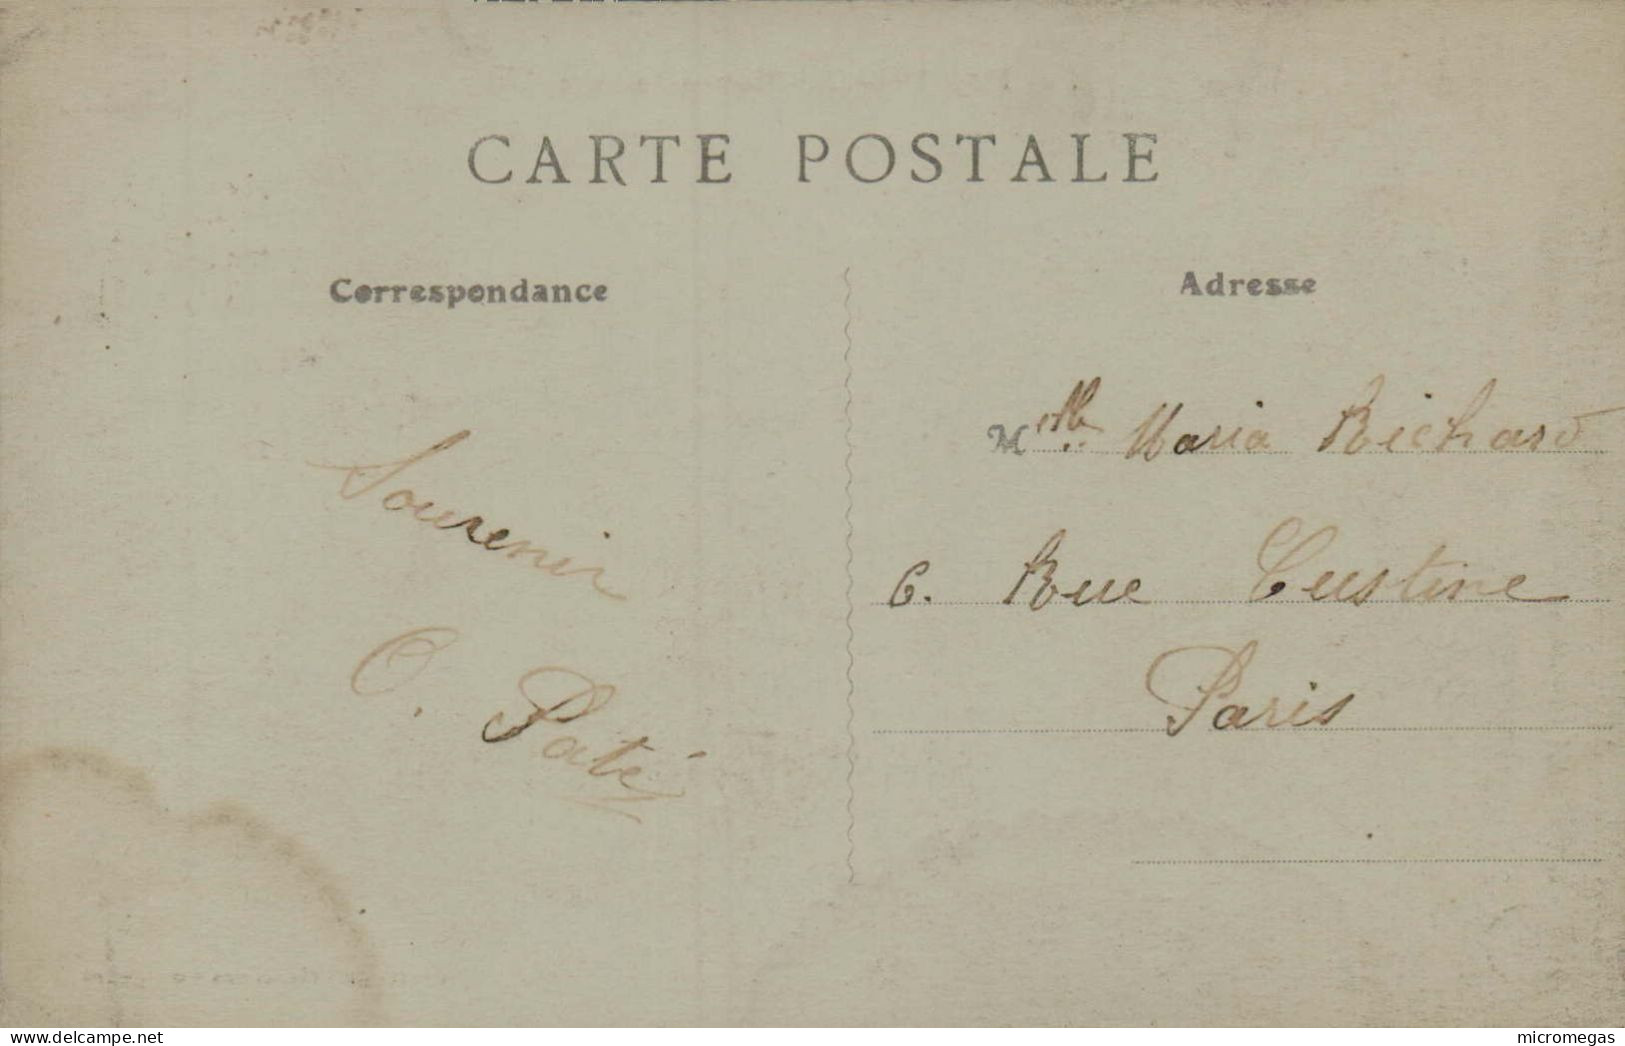 CARTE POSTALE
Correspondance
Souvenir
O. Paté
Adresse
Melle Maria Richard
6. Rue Custine
Paris
www.delcampe.net
micromegas